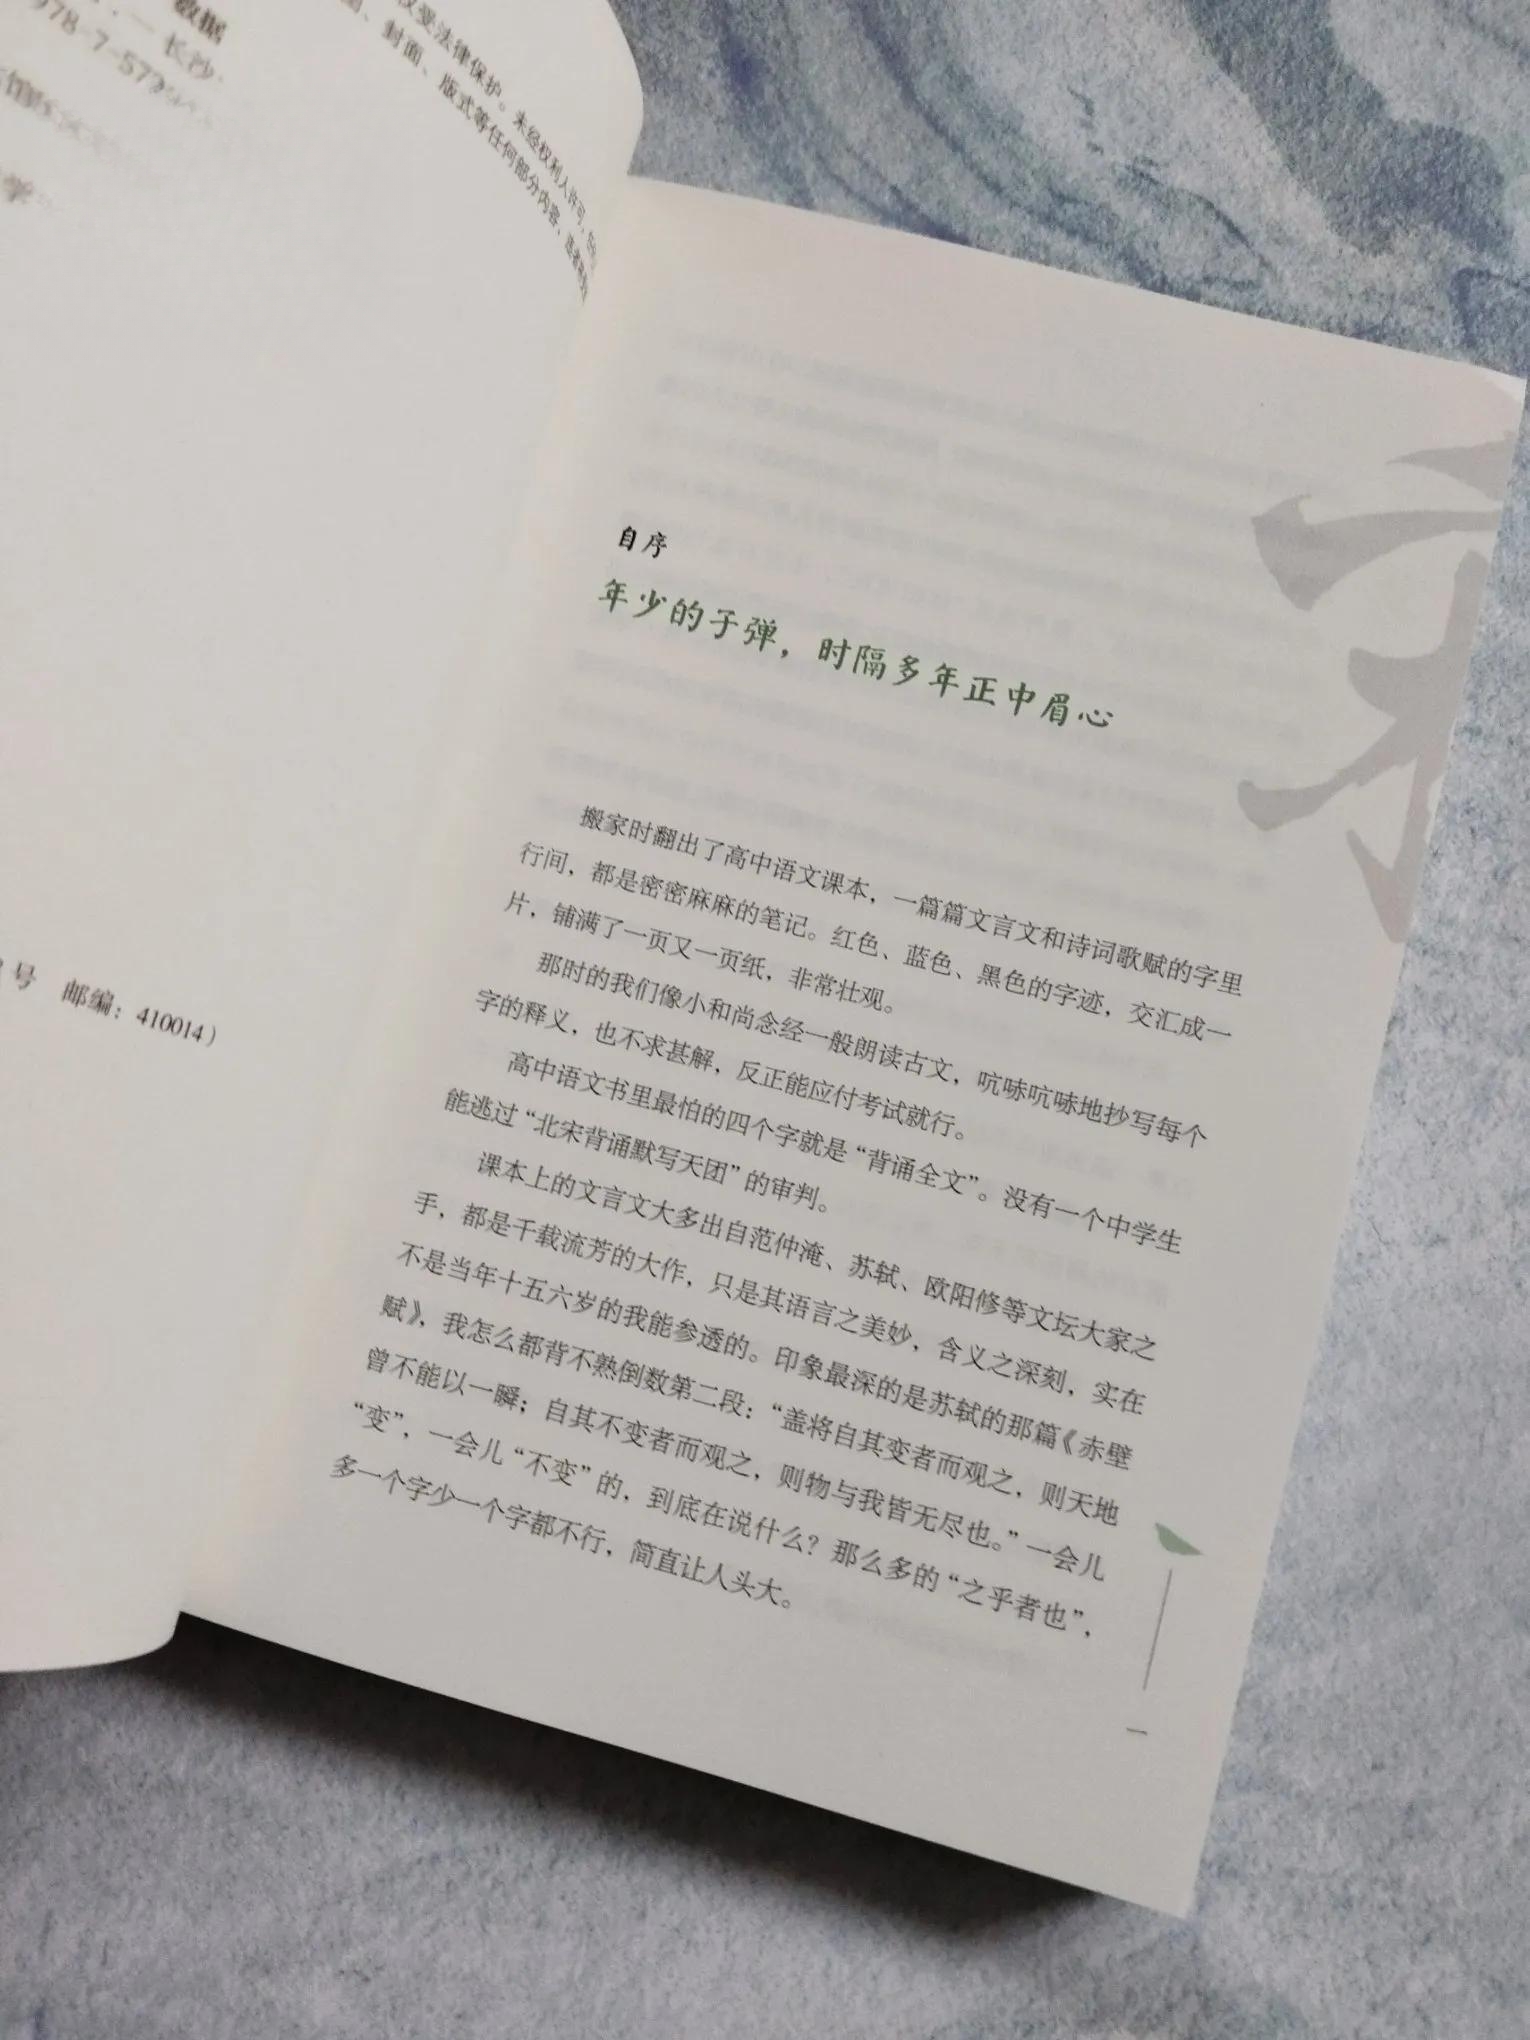 数据
. — 长沙.
978-7-572
权受法律保护。未经权利人许可,
封面、版式等任何部分内容、
学
号 邮编：410014）
宋
自序
年少的子弹，时隔多年正中眉心
搬家时翻出了高中语文课本，一篇篇文言文和诗词歌赋的字里
行间，都是密密麻麻的笔记。红色、蓝色、黑色的字迹，交汇成一
片，铺满了一页又一页纸，非常壮观。
那时的我们像小和尚念经一般朗读古文，吭哧吭哧地抄写每个
字的释义，也不求甚解，反正能应付考试就行。
高中语文书里最怕的四个字就是“背诵全文”。没有一个中学生
能逃过“北宋背诵默写天团”的审判。
课本上的文言文大多出自范仲淹、苏轼、欧阳修等文坛大家之
手，都是千载流芳的大作，只是其语言之美妙，含义之深刻，实在
不是当年十五六岁的我能参透的。印象最深的是苏轼的那篇《赤壁
赋》，我怎么都背不熟倒数第二段：“盖将自其变者而观之，则天地
曾不能以一瞬；自其不变者而观之，则物与我皆无尽也。”一会儿
“变”，一会儿“不变”的，到底在说什么？那么多的“之乎者也”，
多一个字少一个字都不行，简直让人头大。
一